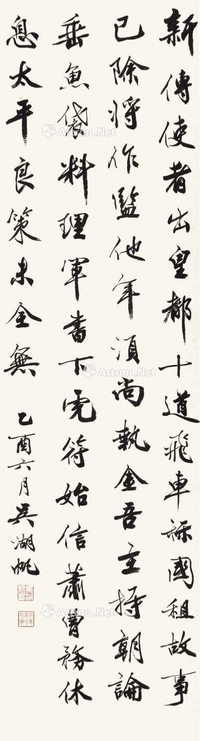 新傳使者出皇都十道飛車課國租故事
已除將作監他年須尚執金吾主持朝論
垂魚袋料理軍書下虎符始信蕭曹務休
息太平良策未全無
乙酉六月吳湖帆